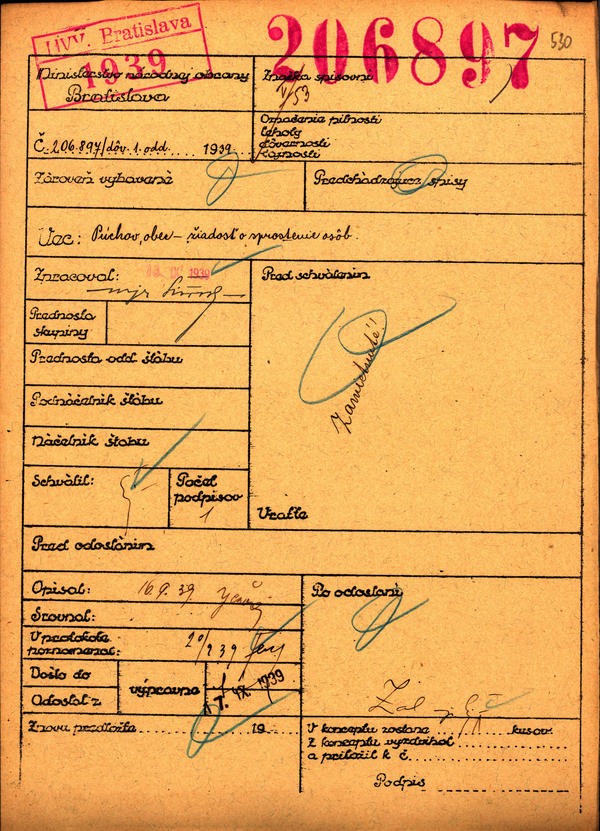 HVV. Bratislava
1939
206897
530
Ministerstvo národnej obrany
Bratislava
Značka spisovní
V/53
Označenie pilnosti
lehoty
dôvernosti
tajnosti
Č. 206.897/dôv. 1. odd. 1939
Zároveň vybavené
Predchádzajúce spisy
Vec: Púchov, obec – žiadosť o sprostenie osôb.
Zpracoval:
1939
mjr
Pred schválením
Prednosta
skupiny
Prednosta odd. štábu
Podnáčelník štábu
Náčelník štábu
Zamietnuté!
Schválil:
Počet
podpisov
1
Vraťte
Pred odoslaním
Opísal: 16.9.39
Srovnal:
V protokole
poznamenal:
Po odoslaní
Došlo do
Odoslal z
výpravne
IX. 1939
Znovu predložte 19
V konceptu zostane kusov.
Z konceptu vyzdvihol
a priložil k č.
Podpis